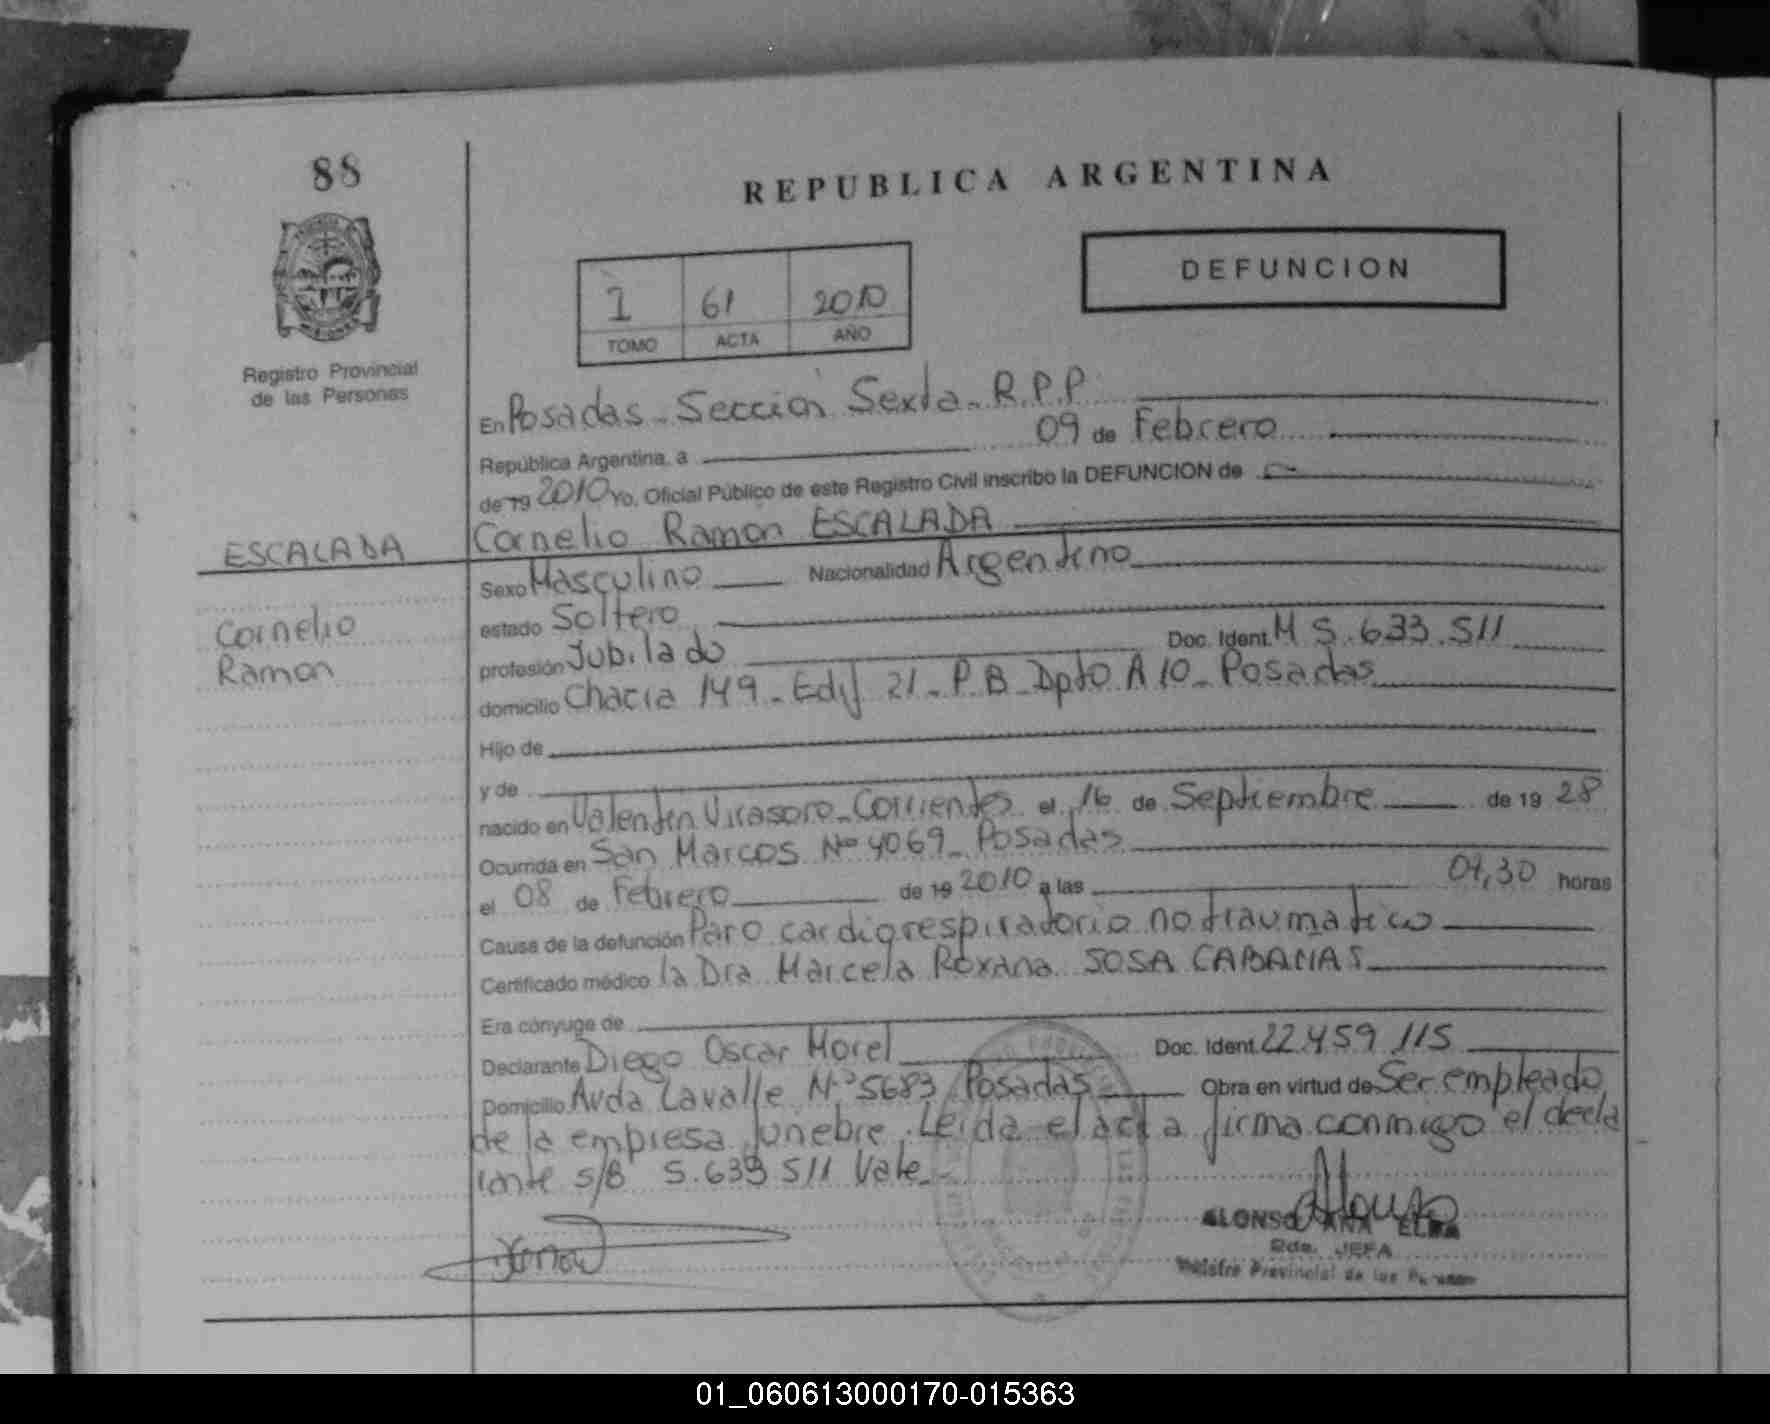 88
REPUBLICA ARGENTINA
DEFUNCION
1 61 2010
TOMO ACTA AÑO
Registro Provincial
de las Personas
En Posadas - Sección Sexta - R.P.P
República Argentina, a 09 de Febrero
de 19 2010 Yo, Oficial Público de este Registro Civil inscribo la DEFUNCION de
ESCALADA Cornelio Ramon ESCALADA
Sexo Masculino Nacionalidad Argentino
Cornelio estado Soltero
Ramon profesión Jubilado Doc. Ident. M 5.633.511
domicilio Chacra 149 - Edif 21 - P.B - Dpto A 10 - Posadas
Hijo de
y de
nacido en Valentin Virasoro - Corrientes el 16 de Septiembre de 19 28
Ocurrida en San Marcos Nº 4069 - Posadas
el 08 de Febrero de 19 2010 a las horas
Causa de la defunción Paro cardiorespiratorio no traumatico
Certificado médico la Dra Marcela Roxana SOSA CABAÑAS
Era cónyuge de
Declarante Diego Oscar Morel Doc. Ident. 22.459.115
Domicilio Avda Lavalle Nº 5683 Posadas Obra en virtud de Ser empleado
de la empresa funebre. Leida el acta firma conmigo el decla
rante s/B 5.633 511 Vale -
ALONSO ANA ELBA
2da. JEFA
Registro Provincial de las Personas
01_060613000170-015363